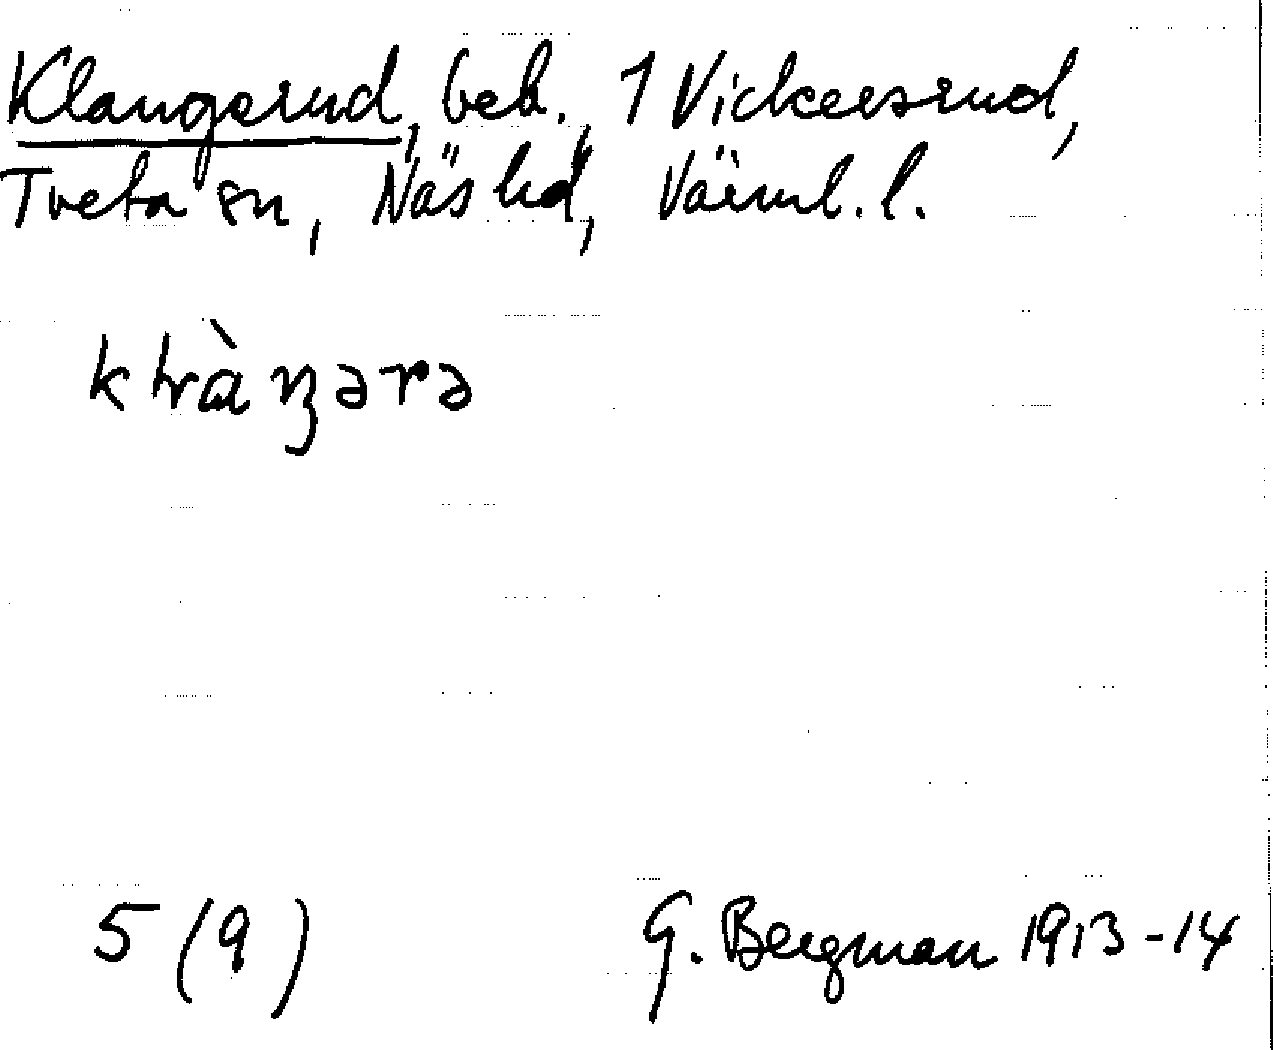 Klangsrud, beb., 1 Vickersrud,
Tveta sn, Näs hd, Värml. l.
5 (9)
G. Bergman 1913-14